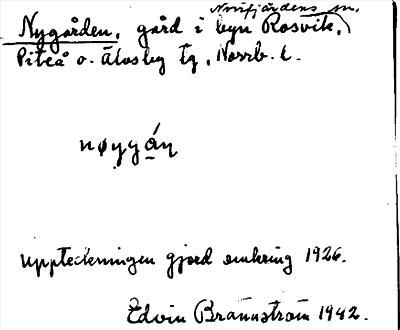 Norrfjärdens sn.
Nygården, gård i byn Rosvik,
Piteå o. Älvsby tg, Norrb. l.
nøygáṇ
Uppteckningen gjord omkring 1926.
Edvin Brännström 1942.